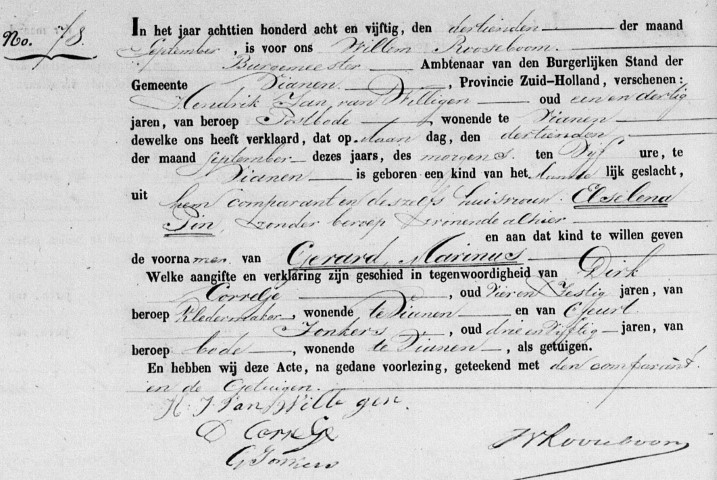 No. 78. In het jaar achttien honderd acht en vijftig, den dertienden der maand
September, is voor ons Willem Rooseboom
Burgemeester Ambtenaar van den Burgerlijken Stand der
Gemeente Vianen, Provincie Zuid-Holland, verschenen:
Hendrik Jan van Willigen oud een en dertig
jaren, van beroep Postbode wonende te Vianen
dewelke ons heeft verklaard, dat op Maandag, den dertienden
der maand September dezes jaars, des morgens ten Vijf ure, te
Vianen is geboren een kind van het Manne lijk geslacht,
uit hem comparant en deszelfs huisvrouw Elselena
Pin, zonder beroep wonende alhier
en aan dat kind te willen geven
de voornamen van Gerard Marinus
Welke aangifte en verklaring zijn geschied in tegenwoordigheid van Dirk
Corretje, oud Vier en Zestig jaren, van
beroep Kledermaker, wonende te Vianen en van Geurt
Jonkers, oud drie en Vijftig jaren, van
beroep bode, wonende te Vianen, als getuigen.
En hebben wij deze Acte, na gedane voorlezing, geteekend met den comparant
en de Getuigen.
H. J. Van Willegen.
D Corretje
G Jonkers
W Rooseboom